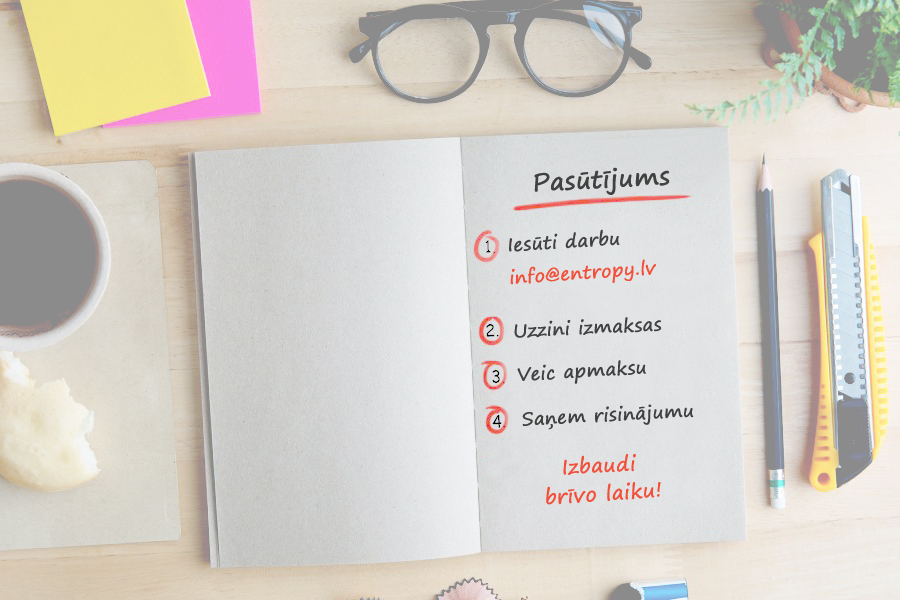 Pasūtījums
1. Iesūti darbu
info@entropy.lv
2. Uzzini izmaksas
3 Veic apmaksu
4. Saņem risinājumu
Izbaudi
brīvo laiku!